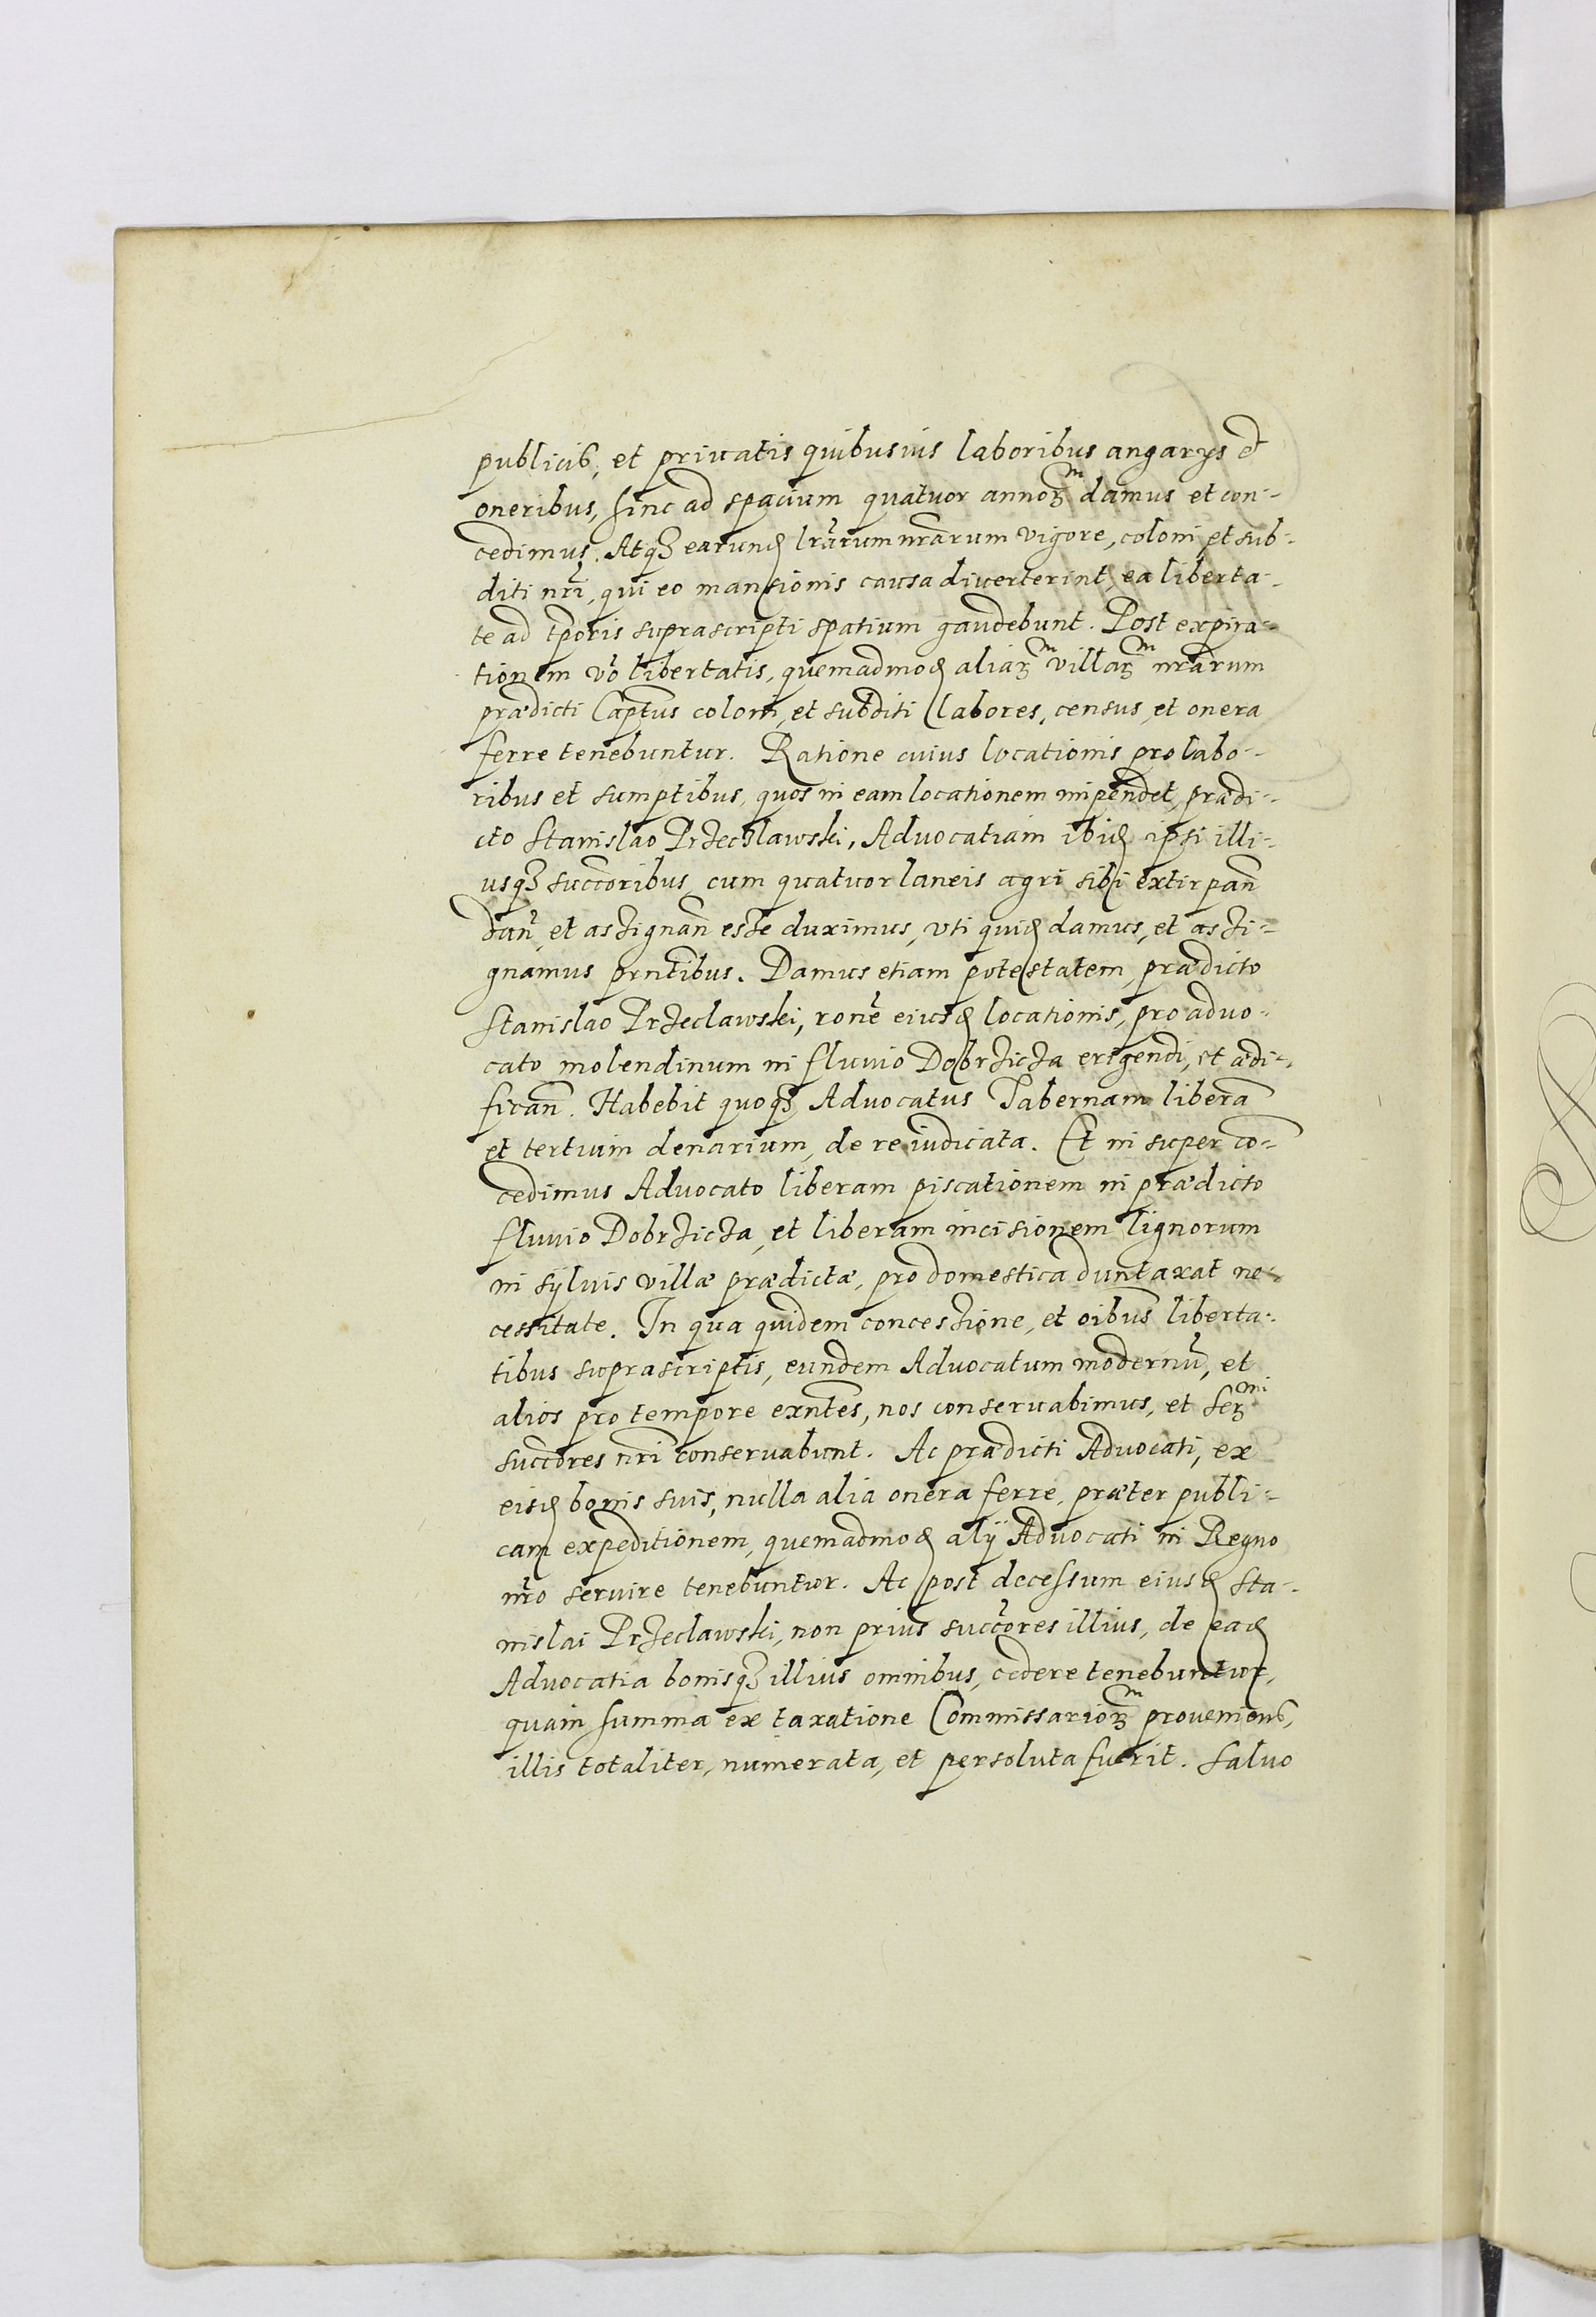 publicis, et privatis quibusuis laboribus angarys et
oneribus, hinc ad spacium quatuor annoꝝm damus et con-
cedimus. Atqꝫ earund lrarum nrarum vigore, coloni et sub-
diti nri, qui eo mansionis causa diuerterint, ea liberta-
te ad tporis suprascripti spatium gaudebunt. Post expira-
tionem vo libertatis, quemadmod aliaꝝm villaꝝm nrarum
prædicti Captus coloni, et subditi labores, census, et onera
ferre tenebuntur. Ratione cuius locationis pro labo-
ribus et sumptibus, quos in eam locationem impendet, prædi-
cto Stanislao Przeczlawski, Advocatiam ibid ipsi illi-
usqꝫ succoribus, cum quatuor laneis agri sibi extirpan
dan, et assignan esse duximus, vti quid damus, et assi-
gnamus prntibus. Damus etiam potestatem, prædicto
Stanislao Przeclawski, rone eiusd locationis, pro advo-
cato molendinum in fluvio Dobrzicza erigendi, et ædi-
fican. Habebit quoqꝫ Advocatus Tabernam libera
et tertium denarium, de re iudicata. Et in super co-
cedimus Advocato liberam piscationem in prædicto
fluvio Dobrzicza, et liberam incisionem lignorum
in sÿluis villæ prædictæ, pro domestica duntaxat ne-
cessitate. In qua quidem concessione, et oibus liberta-
tibus suprascriptis, eundem Advocatum modernu, et
alios pro tempore exntes, nos conseruabimus, et Serꝫmi
succores nri conservabunt. Ac prædicti Advocati, ex
eisd bonis suis, nulla alia onera ferre, præter publi-
cam expeditionem, quemadmod alÿ Advocati in Regno
nro seruire tenebuntur. Ac post decessum eiusd Sta-
nislai Przeclawski, non prius succores illius, de ead
Advocatia bonisqꝫ illius omnibus, cedere tenebuntur,
quam summa ex taxatione Commissarioꝝm proueniens,
illis totaliter, numerata, et persoluta fuerit. Saluo